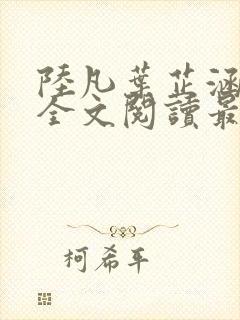 陸凡葉芷涵
全文閱讀最
柯希平